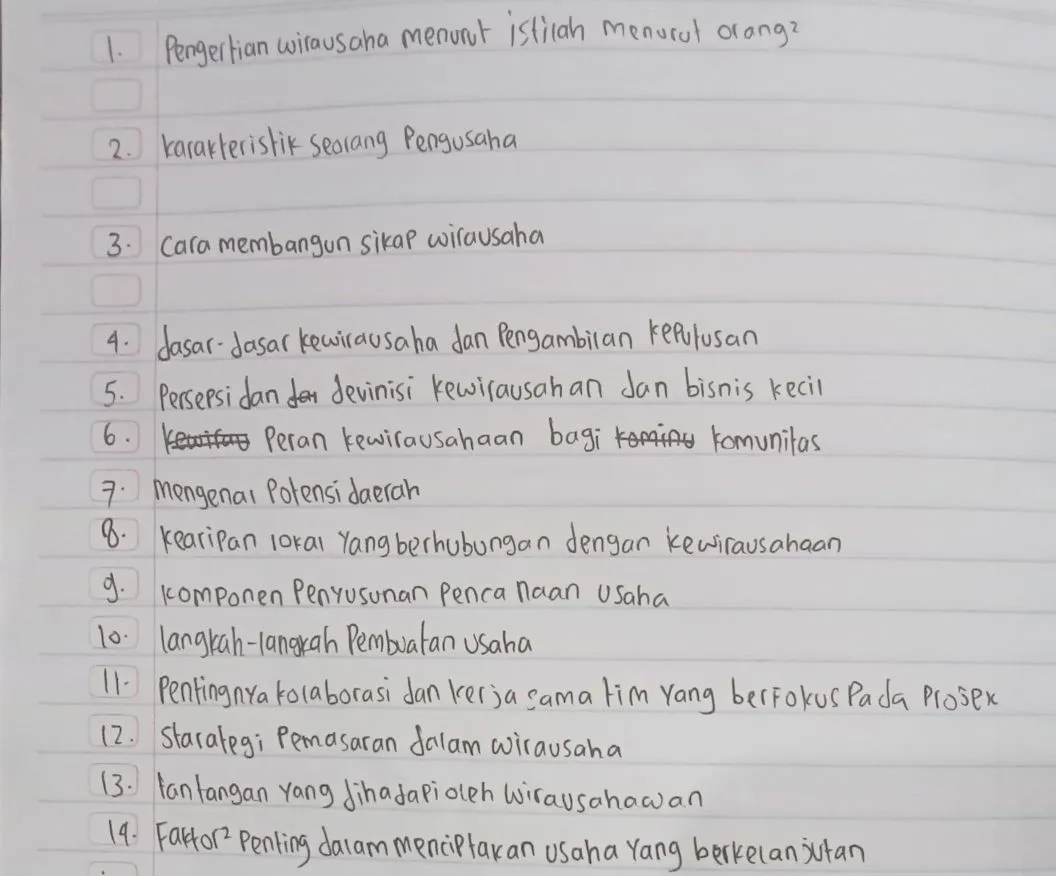 1. Pengertian wirausaha menurut istilah menurut orang²
2. karakteristik seorang Pengusaha
3. Cara membangun sikap wirausaha
4. dasar-dasar kewirausaha dan Pengambilan keputusan
5. Persepsi dan dan devinisi kewirausahan dan bisnis kecil
6. Peran kewirausahaan bagi kominu komunitas
7. Mengenal Potensi daerah
8. kearipan lokal Yang berhubungan dengan kewirausahaan
9. komponen Penyusunan Penca naan usaha
10. langkah-langkah Pembuatan usaha
11. Pentingnya kolaborasi dan kerja sama tim Yang berfokus Pada Prosek
12. Starategi Pemasaran dalam wirausaha
13. tantangan yang dihadapi oleh wirausahawan
14. Faktor² Penting dalam menciptakan usaha Yang berkelanjutan